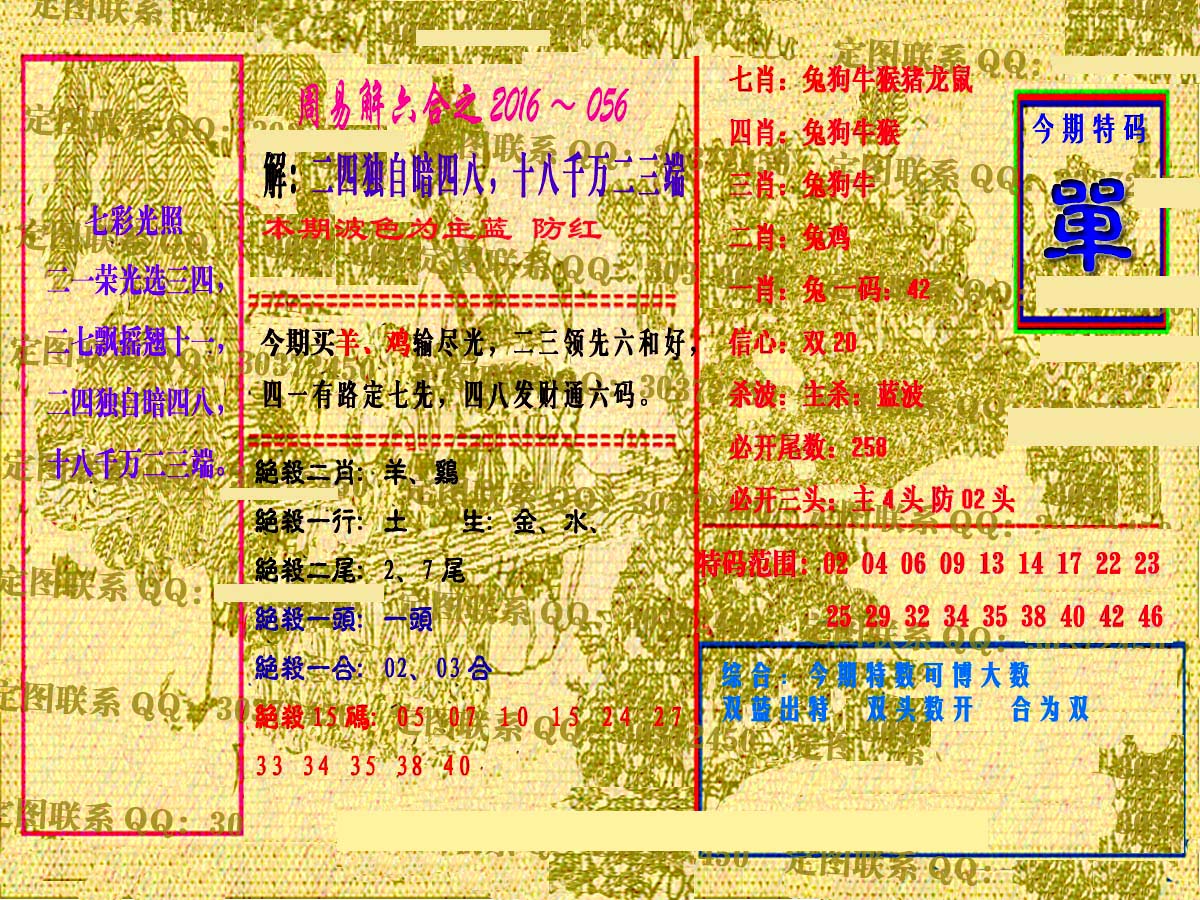 周易解六合之2016～056
七彩光照
二一荣光选三四，
二七飘摇翘十一，
二四独自暗四八，
十八千万二三端。
解：二四独自暗四八，十八千万二三端
本期波色为主蓝 防红
今期买羊、鸡输尽光，二三领先六和好，
四一有路定七先，四八发财通六码。
絕殺二肖：羊、鷄
絕殺一行：土 生：金、水、
絕殺二尾：2、7尾
絕殺一頭：一頭
絕殺一合：02、03合
絕殺15碼：05 07 10 15 24 27
33 34 35 38 40
七肖：兔狗牛猴猪龙鼠
四肖：兔狗牛猴
三肖：兔狗牛
二肖：兔鸡
一肖：兔 一码：42
信心：双20
杀波：主杀：蓝波
必开尾数：258
必开三头：主4头防02头
今期特码
單
特码范围：02 04 06 09 13 14 17 22 23
25 29 32 34 35 38 40 42 46
综合：今期特数可博大数
双蓝出特，双头数开 合为双
定图联系QQ：